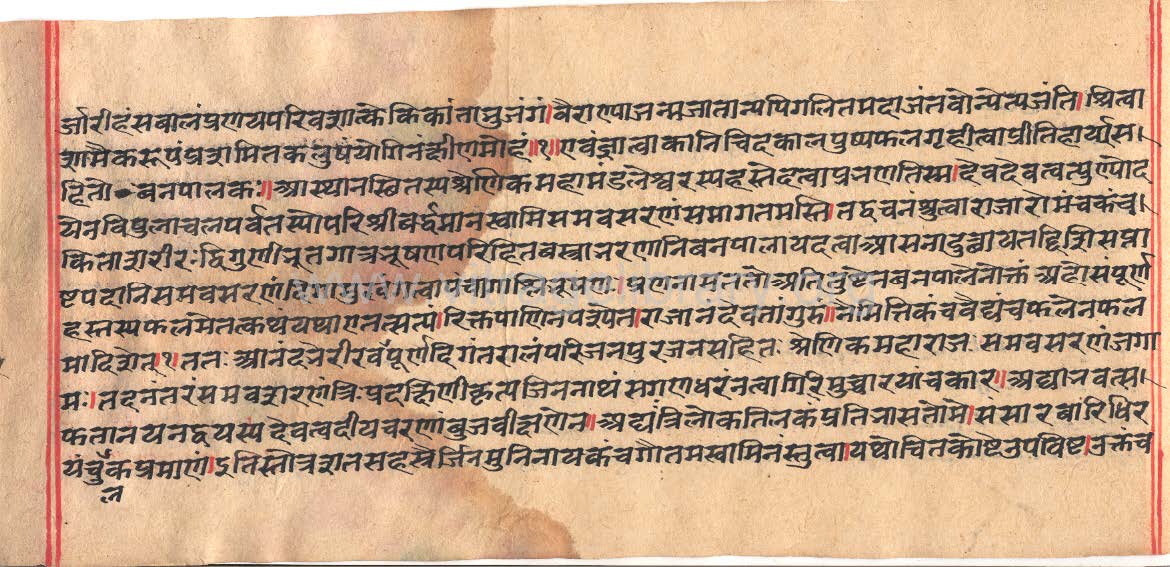 र्जारीहंसबालंप्रणयपरिवशात्केकिकांताभुजंगं।वैराण्याजन्मजातान्यपिगलितमदाजंतवोन्येत्यजंति।श्रित्वा
शामैकरूपंप्रशमितकलुषंयोगिनंक्षीणमोहं॥१॥एवंज्ञात्वाकानिचिदकालपुष्पफलगृहीत्वाप्रीतिहार्यास।
हितोबनपालकः॥आस्थानस्थितस्यश्रेणिकमहामंडलेश्वरस्यहस्तेदत्वाप्रनणतिस्म।हेदेवदेवत्वत्पुण्योद
येनविपुलाचलपर्वतस्योपरिश्रीवर्द्धमानस्वामिसमवसरणंसमागतमस्ति।तद्वचनंश्रुत्वाराजारोमंचकंचु।
कितशरीरःद्विगुणीभूतगात्रभूषणपरिहितवस्त्राभरणानिबनपालायदत्वाआसनादुत्थायतद्दिशिसप्ता
ष्टपदानिसमवसरणं
हस्तस्यफलमेतत्कथंयथाएतत्सत्यं।रिक्तपाणिर्नपश्येत।राजानंदेवतांगुरुं।नैमित्तिकंचवैद्यंचफलेनफल
मादिशेत्॥१॥ततःआनंदभेरीरवंपूर्णदिगंतरालंपरिजनपुरजनसहितःश्रेणिकमहाराजःसमवसरणंजगा
मः।तदनंतरंसमवशरणंत्रिःप्रदक्षिणीकृत्यजिननाथंसगणधरंनत्वागिरिमुच्चारयांचकार॥अद्याभवत्स।
फलतानयनद्वयस्यदेवत्वदीयचरणांबुजवीक्षणेन॥अद्यत्रिलोकतिलकंप्रतिभासतेमे।संसारवारिधिर
यंचुलुकप्रमाणं।इतिस्तोत्रशतसहस्रैर्जिनमुनिनायकंचगौतमस्वामिनंस्तुत्वा।यथोचितकोष्टेउपविष्टः।उक्तंच